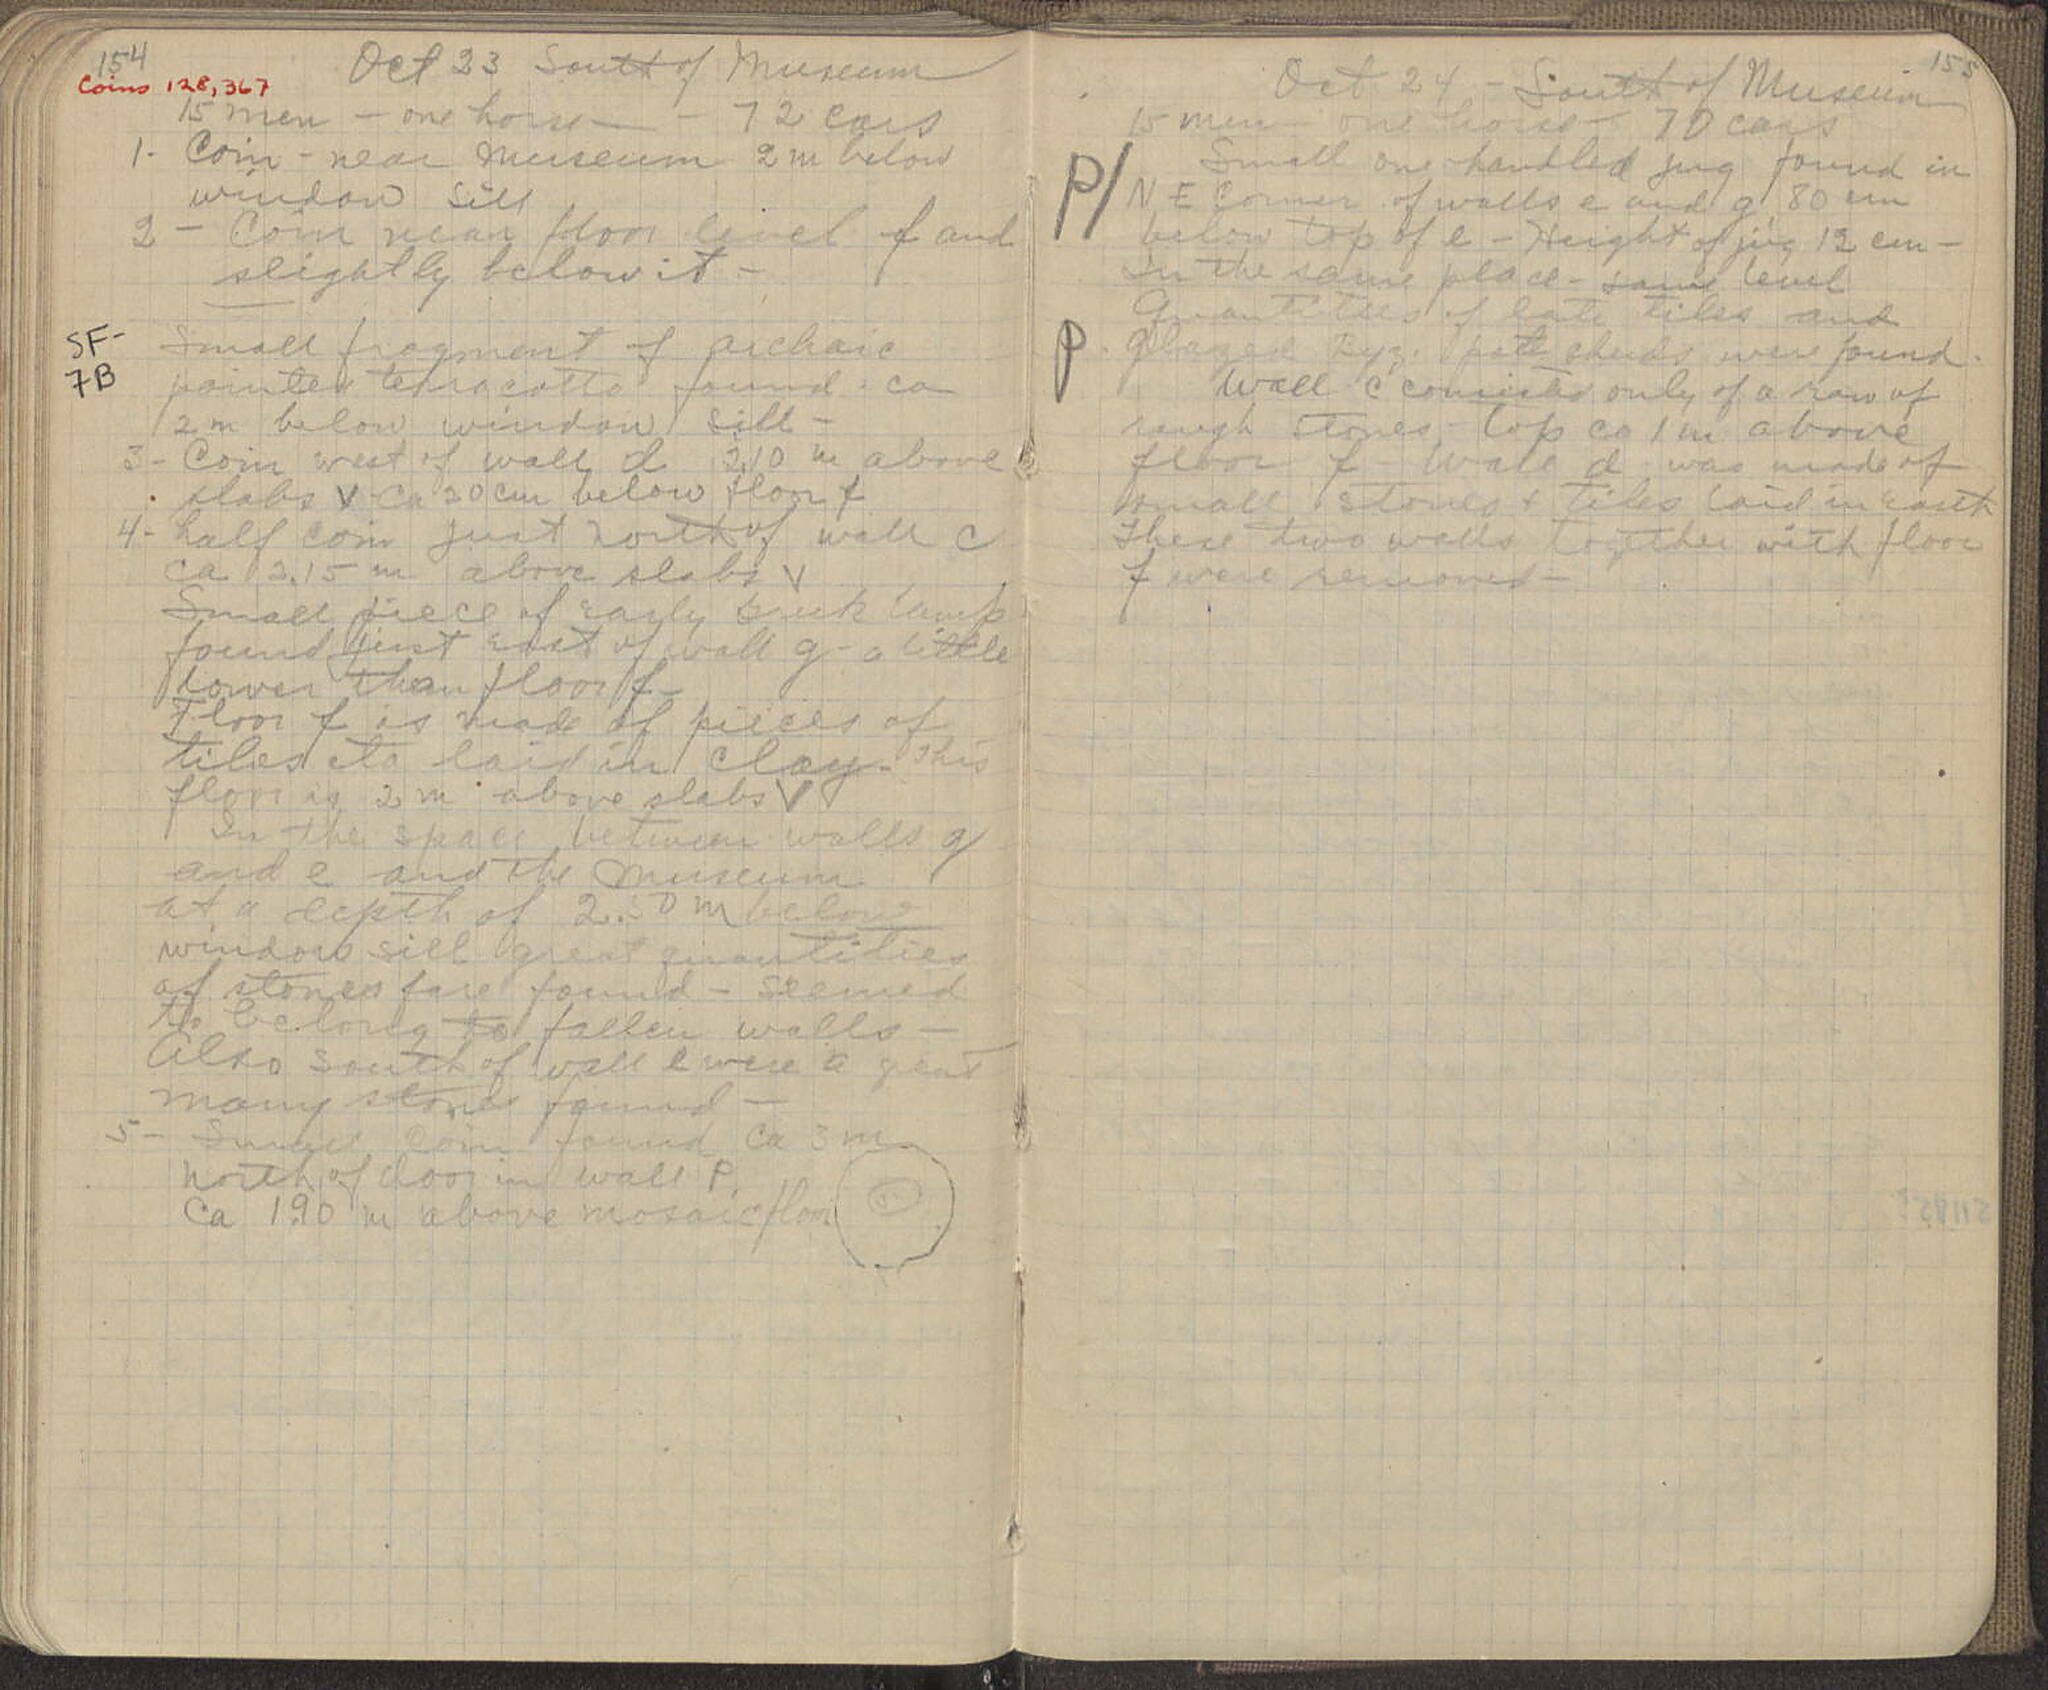 154
Coins 128, 367
Oct 23 South of Museum
15 men - one horse - 72 cars
1- Coin - near Museum 2 m below
window sill
2 - Coin near floor level f and
slightly below it -
SF-
7B
Small fragment of archaic
painted terracotta found ca
2 m below window sill -
3- Coin west of wall d 2.10 m above
slabs V ca 20 cm below floor f
4- half coin just north of wall C
ca 2.15 m above slabs V
Small piece of early Greek lamp
found just east of wall g - a little
lower than floor f -
Floor f is made of pieces of
tiles etc laid in clay. This
floor is 2 m above slabs V
In the space between walls g
and e and the Museum
at a depth of 2.50 m below
window sill great quantities
of stones are found - seemed
to belong to fallen walls -
Also south of wall e were a great
many stones found -
5- Small coin found ca 3 m
north of door in wall P.
Ca 1.90 m above mosaic floor
155
Oct 24 - South of Museum
15 men - one horse - 70 cars
P/
Small one handled jug found in
N E Corner of walls e and g, 80 cm
below top of e - Height of jug 12 cm -
In the same place - same level
Quantities of late tiles and
P
glazed Byz. potsherds were found.
Wall c consisted only of a row of
rough stones, top ca 1 m above
floor f - Wall d was made of
small stones + tiles laid in earth
These two walls together with floor
f were removed -